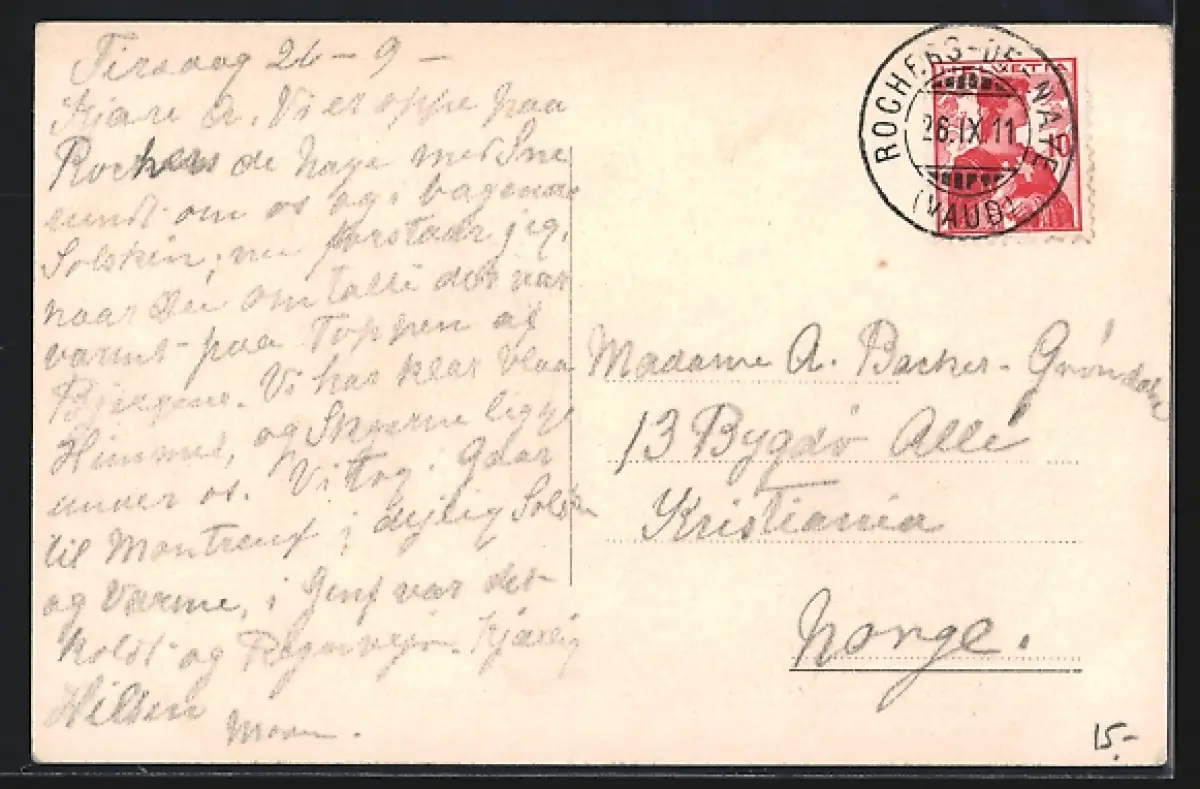 Tirsdag 26-9-
Kjære A. Vi er oppe paa
Rochers de Naye med Sne
rundt om os og i bagende
Solskin; nu forstaar jeg,
naar Du omtalte det var
varmt paa Toppen af
Bjergene. Vi har klar blaa
Himmel, og Skyerne ligge
under os. Vi tog igaar
til Montreux i dejlig Solskin
og Varme, i Genf var det
koldt og Regnvejr. Kjærlig
Hilsen
ROCHERS-DE-NAYE
26.IX.11
(VAUD)
HELVETIA
10
Madame A. Backer-Grøndahl
13 Bygdø Allé
Kristiania
Norge.
15.-